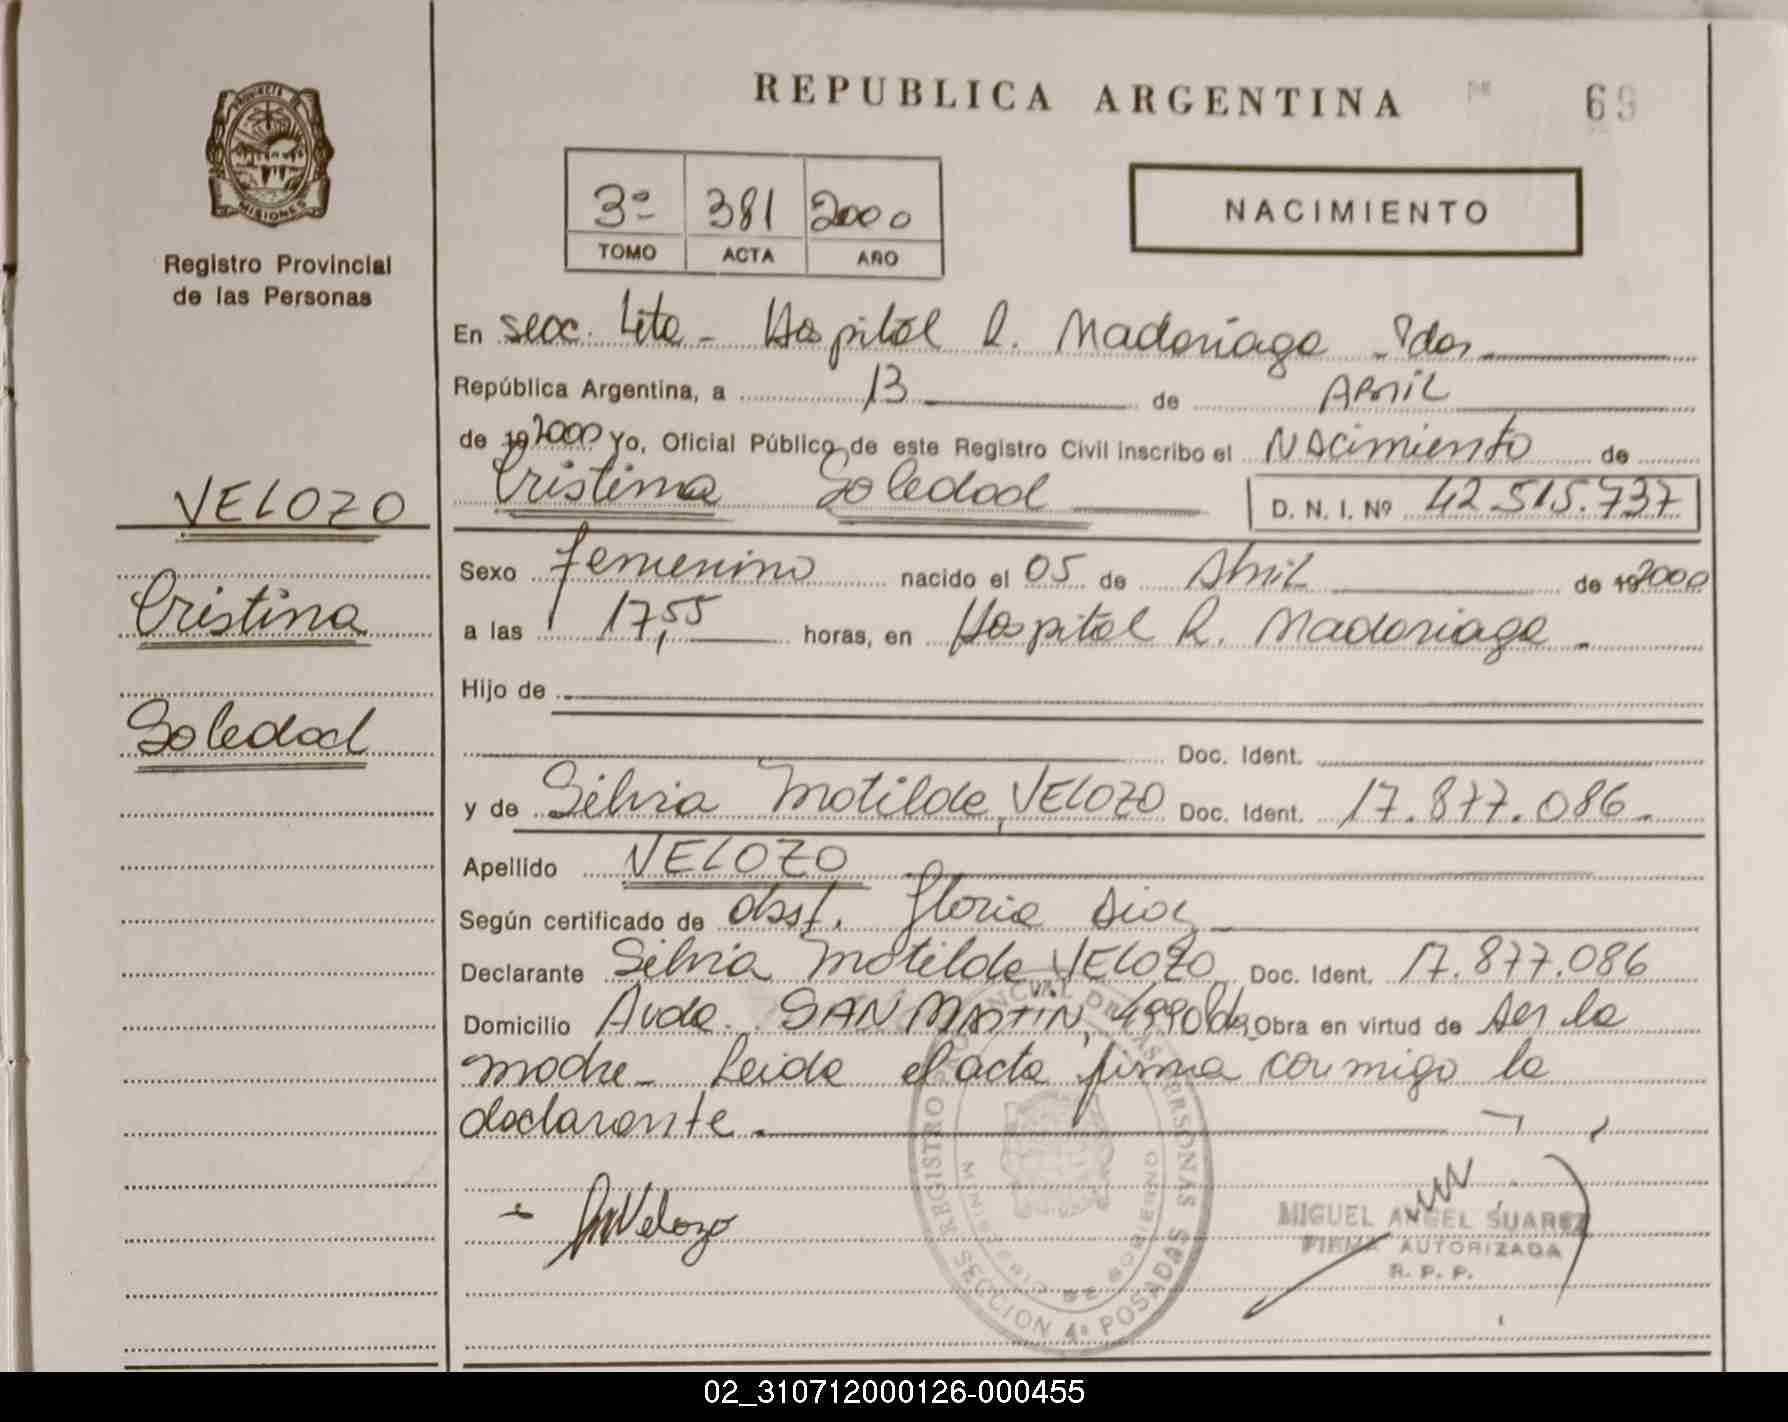 REPUBLICA ARGENTINA
69
PROVINCIA DE
MISIONES
Registro Provincial
de las Personas
3º 381 2000
TOMO ACTA AÑO
NACIMIENTO
En secc. 4ta - Hospital R. Madariaga - Pdas
República Argentina, a 13 de Abril
de 19 2000 Yo, Oficial Público de este Registro Civil inscribo el Nacimiento de
Cristina Soledad D. N. I. Nº 42.515.737
VELOZO
Cristina
Soledad
Sexo femenino nacido el 05 de Abril de 19 2000
a las 17,55 horas, en Hospital R. Madariaga.
Hijo de
Doc. Ident.
y de Silvia Matilde VELOZO Doc. Ident. 17.877.086.
Apellido VELOZO
Según certificado de obst. Gloria Dios
Declarante Silvia Matilde VELOZO Doc. Ident. 17.877.086
Domicilio Avda. SAN MARTIN, 4990 Pdas Obra en virtud de ser la
madre - Leida el acta firma conmigo la
declarante.
Velozo
REGISTRO PROVINCIAL DE LAS PERSONAS
MINISTERIO DE GOBIERNO
SECCION 4ª POSADAS
MIGUEL ANGEL SUAREZ
FIRMA AUTORIZADA
R. P. P.
02_310712000126-000455